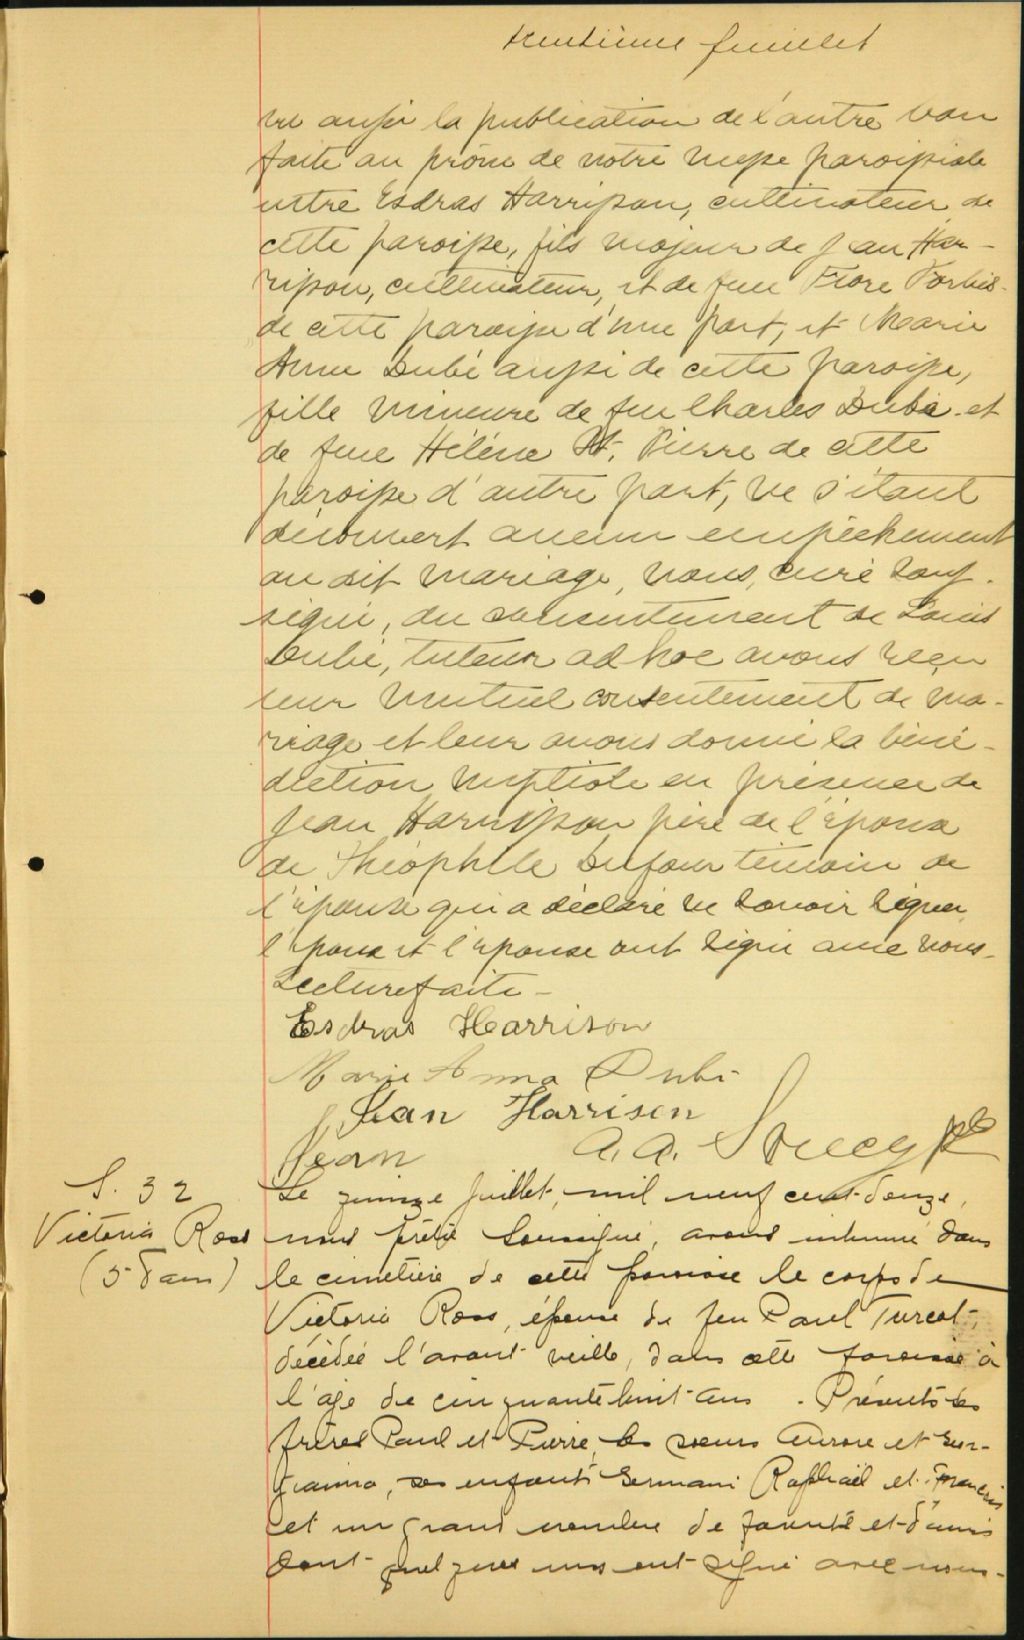 trentième feuillet
vu aussi la publication de l'autre ban
faite au prône de notre messe paroissiale
entre Esdras Harrisson, cultivateur de
cette paroisse, fils majeur de Jean Har-
risson, cultivateur, et de feue Flore Forbes
de cette paroisse d'une part, et Marie
Anne Dubé aussi de cette paroisse,
fille mineure de feu Charles Dubé et
de feue Hélène St. Pierre de cette
paroisse d'autre part, ne s'étant
découvert aucun empêchement
au dit mariage, nous, curé sous-
signé, du consentement de Louis
Dubé, tuteur ad hoc avons reçu
leur mutuel consentement de ma-
riage et leur avons donné la béné-
diction nuptiale en présence de
Jean Harrisson père de l'époux
de Théophile Dufour témoin de
l'épouse qui a déclaré ne savoir signer,
l'époux et l'épouse ont signé avec nous.
Lecture faite -
Esdras Harrison
Marie Anna Dubé
Jean Harrison
Jean A. A. ptre
S. 32
Victoria Ross
(58 ans)
Le quinze juillet, mil neuf cent douze,
nous prêtre soussigné, avons inhumé dans
le cimetière de cette paroisse le corps de
Victoria Ross, épouse de feu Paul Turcot,
décédée l'avant veille, dans cette paroisse à
l'âge de cinquante huit ans. Présents ses
frères Paul et Pierre, les soeurs Aurore et Geor-
gianna, ses enfants Germain Raphaël et François
et un grand nombre de parents et d'amis
dont quelques uns ont signé avec nous.